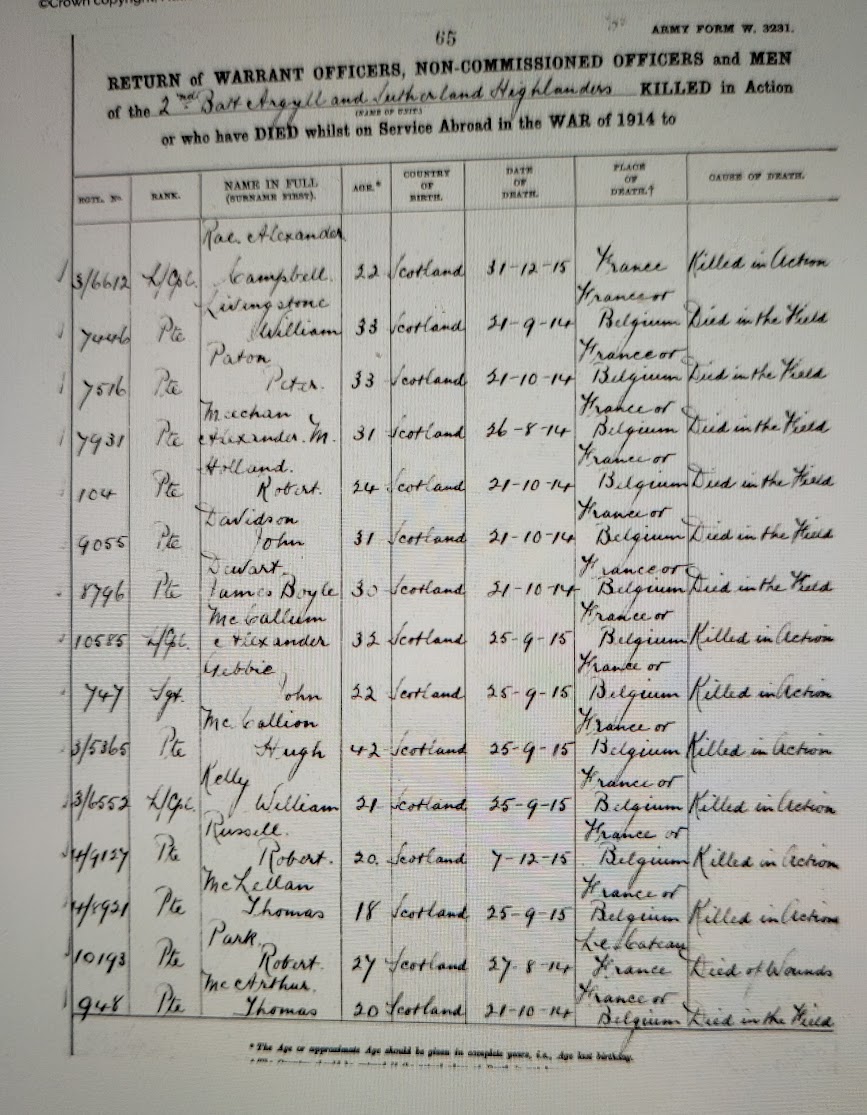 ©Crown copyright
65
ARMY FORM W. 3231.
RETURN of WARRANT OFFICERS, NON-COMMISSIONED OFFICERS and MEN
of the 2nd Batt Argyll and Sutherland Highlanders KILLED in Action
(NAME OF UNIT.)
or who have DIED whilst on Service Abroad in the WAR of 1914 to
REGTL. No. RANK. NAME IN FULL (SURNAME FIRST). AGE.* COUNTRY OF BIRTH. DATE OF DEATH. PLACE OF DEATH.† CAUSE OF DEATH.
Rae. Alexander
3/6612 L/Cpl. Campbell. 22 Scotland 31-12-15 France Killed in Action
Livingstone France or
7446 Pte William 33 Scotland 21-9-14 Belgium Died in the Field
Paton France or
7516 Pte Peter. 33 Scotland 21-10-14 Belgium Died in the Field
Meechan France or
7931 Pte Alexander. M. 31 Scotland 26-8-14 Belgium Died in the Field
Holland. France or
104 Pte Robert. 24 Scotland 21-10-14 Belgium Died in the Field
Davidson France or
9055 Pte John 31 Scotland 21-10-14 Belgium Died in the Field
Dewart. France or
8796 Pte James Boyle 30 Scotland 21-10-14 Belgium Died in the Field
McCallum France or
10585 L/Cpl. Alexander 32 Scotland 25-9-15 Belgium Killed in Action
Gebbie France or
747 Sgt. John 22 Scotland 25-9-15 Belgium Killed in Action
McCallion France or
3/5365 Pte Hugh 42 Scotland 25-9-15 Belgium Killed in Action
Kelly France or
3/6552 L/Cpl. William 21 Scotland 25-9-15 Belgium Killed in Action
Russell. France or
4/9127 Pte Robert. 20. Scotland 7-12-15 Belgium Killed in Action
McLellan France or
4/8921 Pte Thomas 18 Scotland 25-9-15 Belgium Killed in Action
Park. Le Cateau
10193 Pte Robert. 27 Scotland 27-8-14 France Died of Wounds
McArthur. France or
948 Pte Thomas 20 Scotland 21-10-14 Belgium Died in the Field
* The Age or approximate Age should be given in complete years, i.e., Age last birthday.